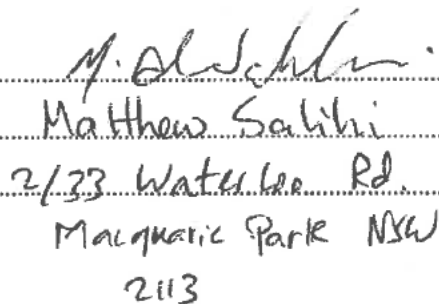 Matthew Salihi
2/33 Waterloo Rd.
Macquarie Park NSW
2113